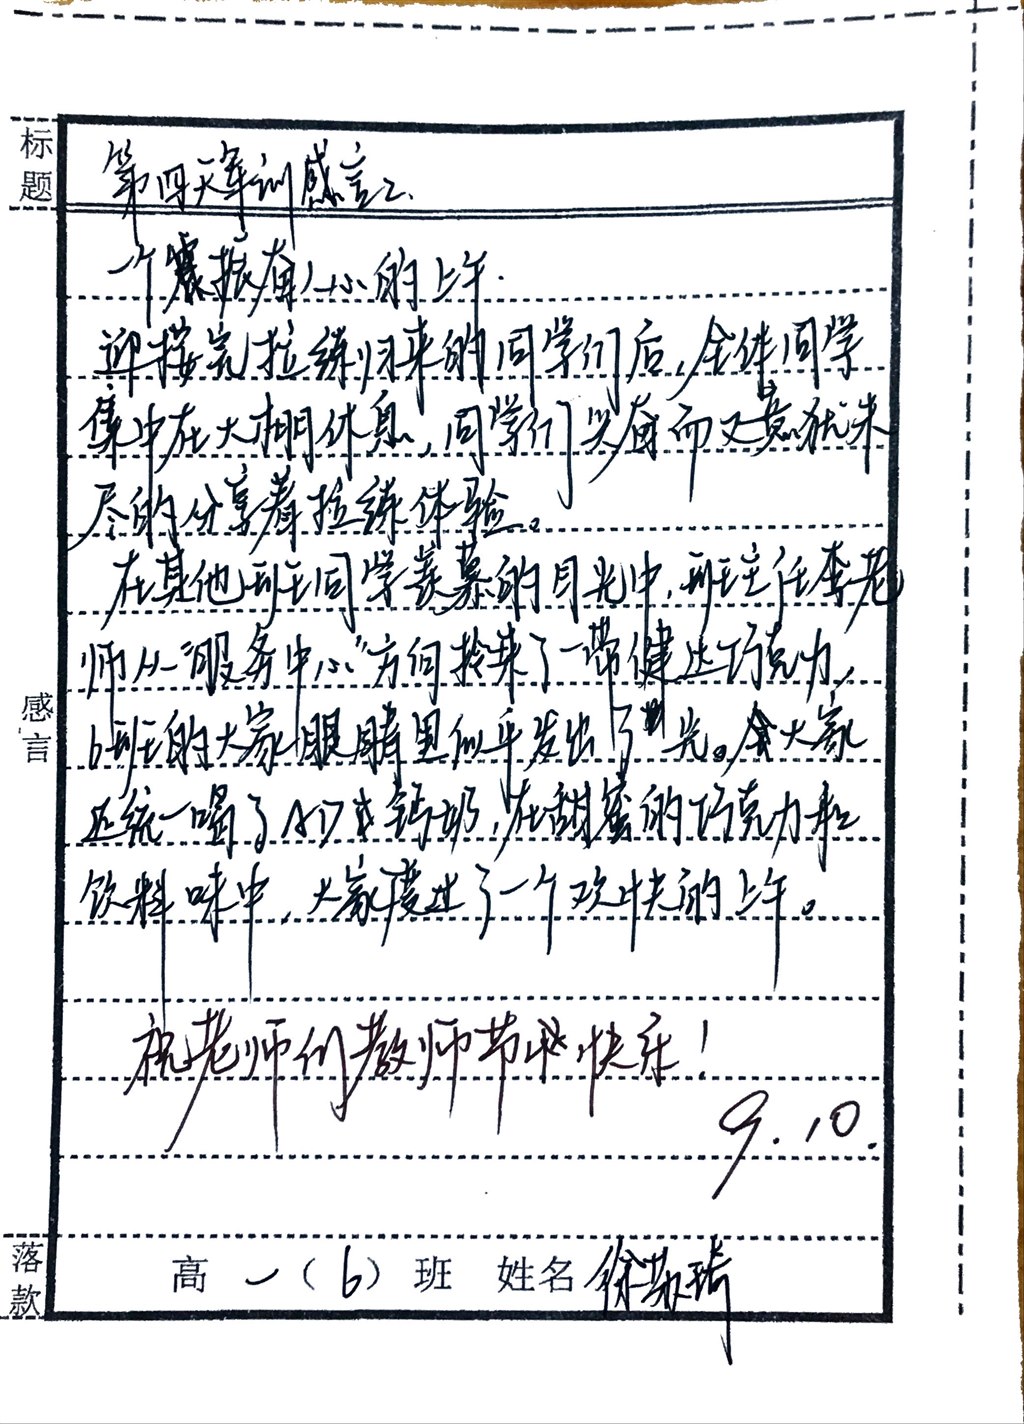 标题
第四天军训感言2.
一个振奋人心的上午.
迎接完拉练归来的同学们后,全体同学
集中在大棚休息,同学们兴奋而又意犹未
尽的分享着拉练体验。
在其他班同学羡慕的目光中,班主任李老
师从“服务中心”方向拎来了一带健达巧克力,
6班的大家眼睛里似乎发出了光。令大家
还统一喝了AD钙奶,在甜蜜的巧克力和
饮料味中,大家度过了一个欢快的上午。
感言
祝老师们教师节快乐!
9.10.
落款
高一(6)班 姓名 徐敬琦